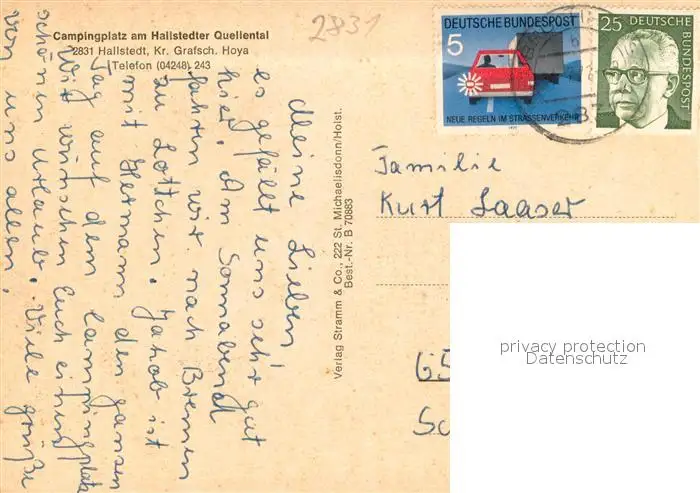 Campingplatz am Hallstedter Quellental
2831 Hallstedt, Kr. Grafsch. Hoya
Telefon (04248) 243
2831
Meine Lieben
es gefällt uns sehr gut
hier. Am Sonnabend
fahren wir nach Bremen
zu Lottchen. Jakob ist
mit Hermann den ganzen
Tag auf dem Campingplatz
Wir wünschen Euch einen
schönen Urlaub. Viele Grüße
von uns allen.
Verlag Stramm & Co., 222 St. Michaelisdonn/Holst.
Best.-Nr. B 70883
DEUTSCHE BUNDESPOST
5
NEUE REGELN IM STRASSENVERKEHR
1971
25 DEUTSCHE
BUNDESPOST
Familie
Kurt Laaser
privacy protection
Datenschutz